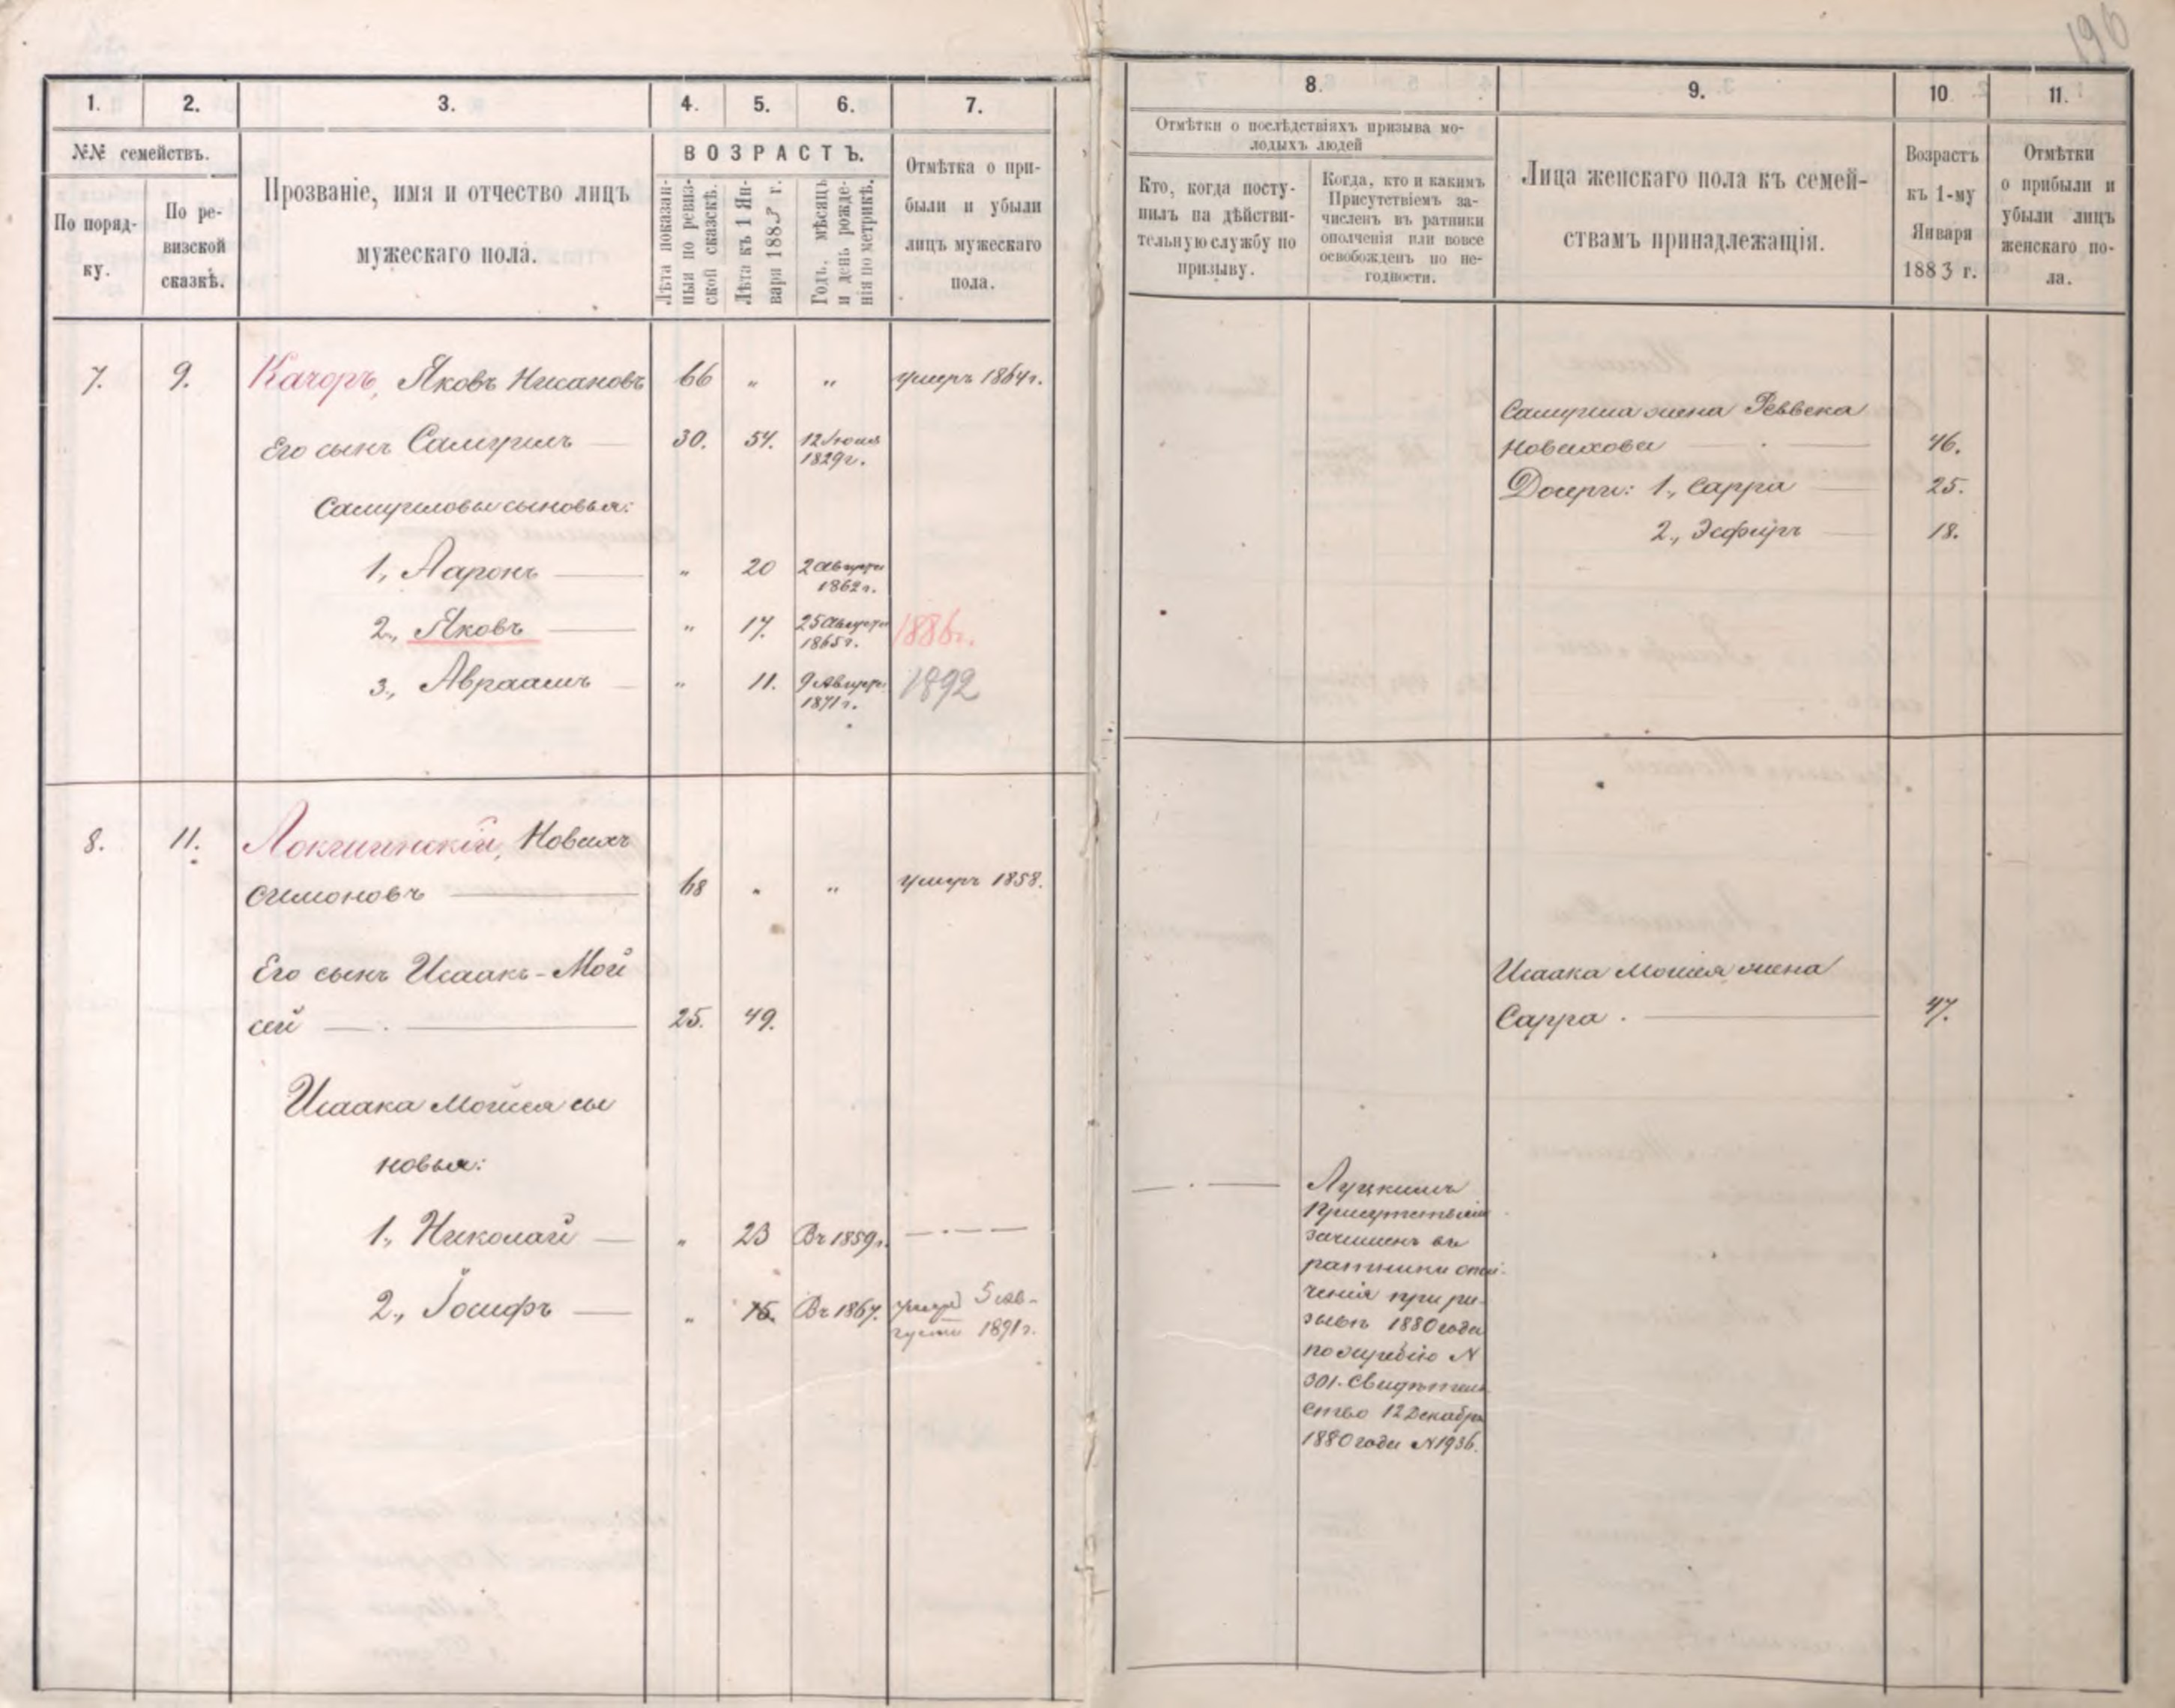 196
1. 2. 3. 4. 5. 6. 7.
№№ семействъ.
По поряд-
ку.
По ре-
визской
сказкѣ.
Прозваніе, имя и отчество лицъ
мужескаго пола.
ВОЗРАСТЪ.
Лѣта показан-
ныя по ревиз-
ской сказкѣ.
Лѣта къ 1 Ян-
варя 1883 г.
Годъ, мѣсяцъ
и день рожде-
нія по метрикѣ.
Отмѣтка о при-
были и убыли
лицъ мужескаго
пола.
7. 9. Качоръ, Яковъ Нисановъ 66 „ „ умеръ 1864 г.
Его сынъ Самуилъ 30. 54. 12 Іюня
1829 г.
Самуиловы сыновья:
1., Ааронъ „ 20 2 Августа
1862 г.
2., Яковъ „ 17. 25 Августа 1886 г.
1865 г.
3., Авраамъ „ 11. 9 Августа 1892
1871 г.
8. 11. Новахъ
Симоновъ 68 „ „ умеръ 1858.
Его сынъ Исаакъ-Мой
сей 25. 49.
Исаака Мойсея сы
новья:
1., Николай „ 23 Въ 1859 г.
2., Іосифъ „ 15. Въ 1867. умеръ 5 ав-
густа 1891 г.
8. 9. 10 11.
Отмѣтки о послѣдствіяхъ призыва мо-
лодыхъ людей
Кто, когда посту-
пилъ на дѣйстви-
тельную службу по
призыву.
Когда, кто и какимъ
Присутствіемъ за-
численъ въ ратники
ополченія или вовсе
освобожденъ по не-
годности.
Лица женскаго пола къ семей-
ствамъ принадлежащія.
Возрастъ
къ 1-му
Января
1883 г.
Отмѣтки
о прибыли и
убыли лицъ
женскаго по-
ла.
Самуила жена Реввека
Новахова 46.
Дочери: 1., Сарра 25.
2., Эсфирь 18.
Исаака Мойсея жена
Сарра 47.
Луцкимъ
Присутствіемъ
зачисленъ въ
ратники опол-
ченія при при-
зывѣ 1880 года
по жребію №
301. Свидѣтель
ство 12 Декабря
1880 года № 1936.